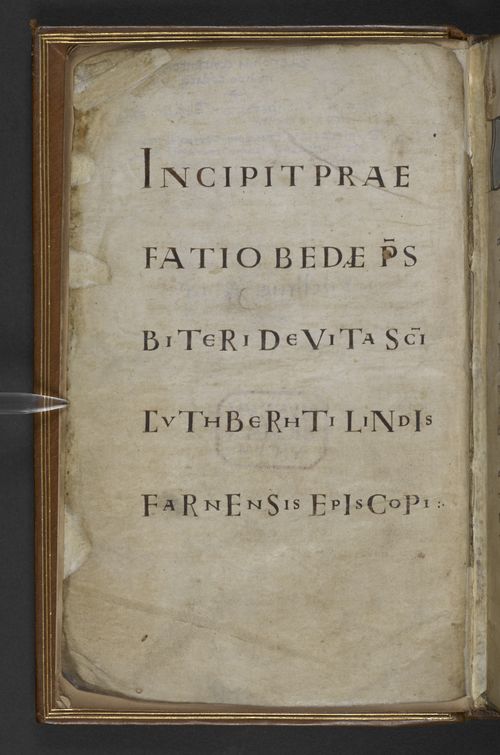 INCIPIT PRAE
FATIO BEDÆ P̄S
BITERI DE VITA SC̄I
CVTHBERHTI LINDIS
FARNENSIS EPISCOPI :.